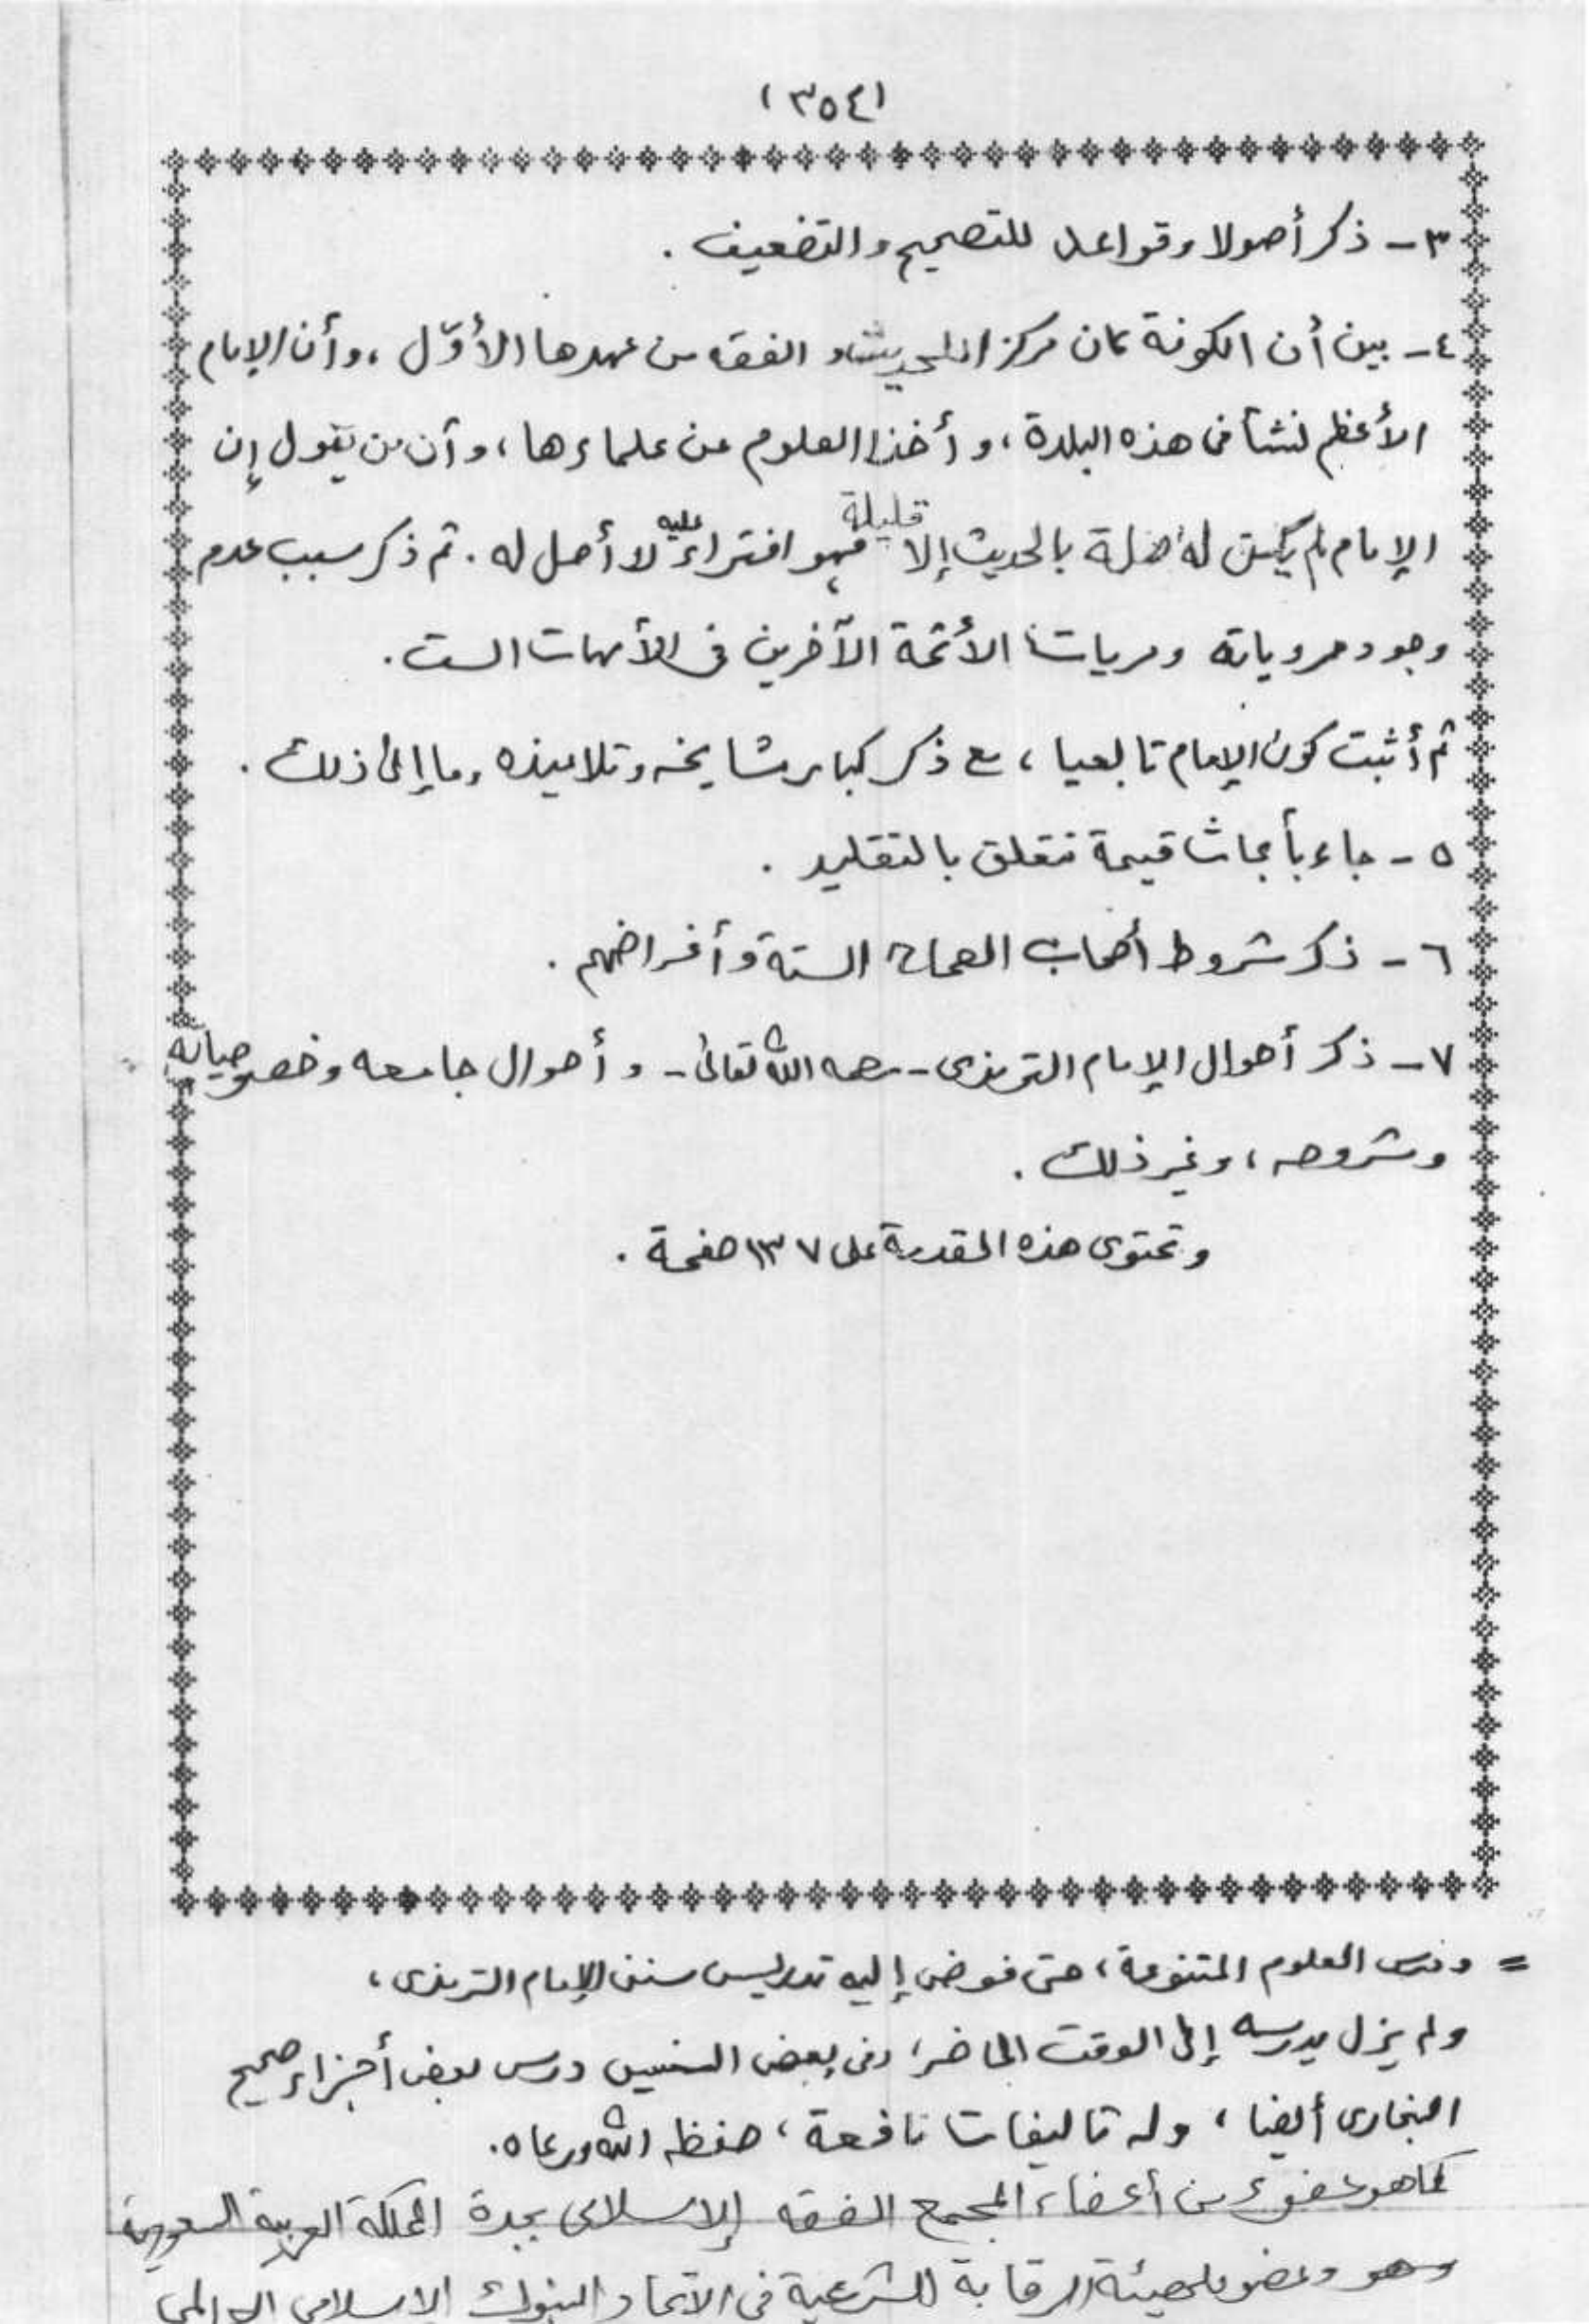 (٣٥٤)
٣- ذكر أصولا وقواعد للتصحيح والتضعيف .
٤- بين أن الكوفة كان مركز الحديث و الفقه من عهدها الأوّل ، وأن الإمام
الأعظم نشأ فى هذه البلدة ، و أخذ العلوم عن علماءها ، و أن من يقول إن
الإمام لم يكن له صلة بالحديث إلا قليلة فهو افتراءٌ عليه لا أصل له . ثم ذكر سبب عدم
وجود مروياته ومرويات الأئمة الآخرين فى الأمهات الست .
ثم أثبت كون الإمام تابعيا ، مع ذكر كبار مشايخه وتلاميذه وما إلى ذلك .
٥ - جاء بأبحاث قيمة تتعلق بالتقليد .
٦ - ذكر شروط أصحاب الصحاح الستة وأغراضهم .
٧- ذكر أحوال الإمام الترمذى - رحمه الله تعالى - و أحوال جامعه وخصوصياته
وشروحه ، وغير ذلك .
وتحتوى هذه المقدمة على ١٣٧ صفحة .
= ودرس العلوم المتنوعة ، حتى فوض إليه تدريس سنن الإمام الترمذى ،
ولم يزل يدرسه إلى الوقت الحاضر ، وفى بعض السنين درس بعض أجزاء صحيح
البخارى أيضا ، وله تاليفات نافعة ، حفظه الله ورعاه .
كما هو عضو من أعضاء المجمع الفقه الإسلامى بجدة المملكة العربية السعودية
وهو وعضو لهيئة الرقابة الشرعية فى الاتحاد البنوك الاسلامى العالمى